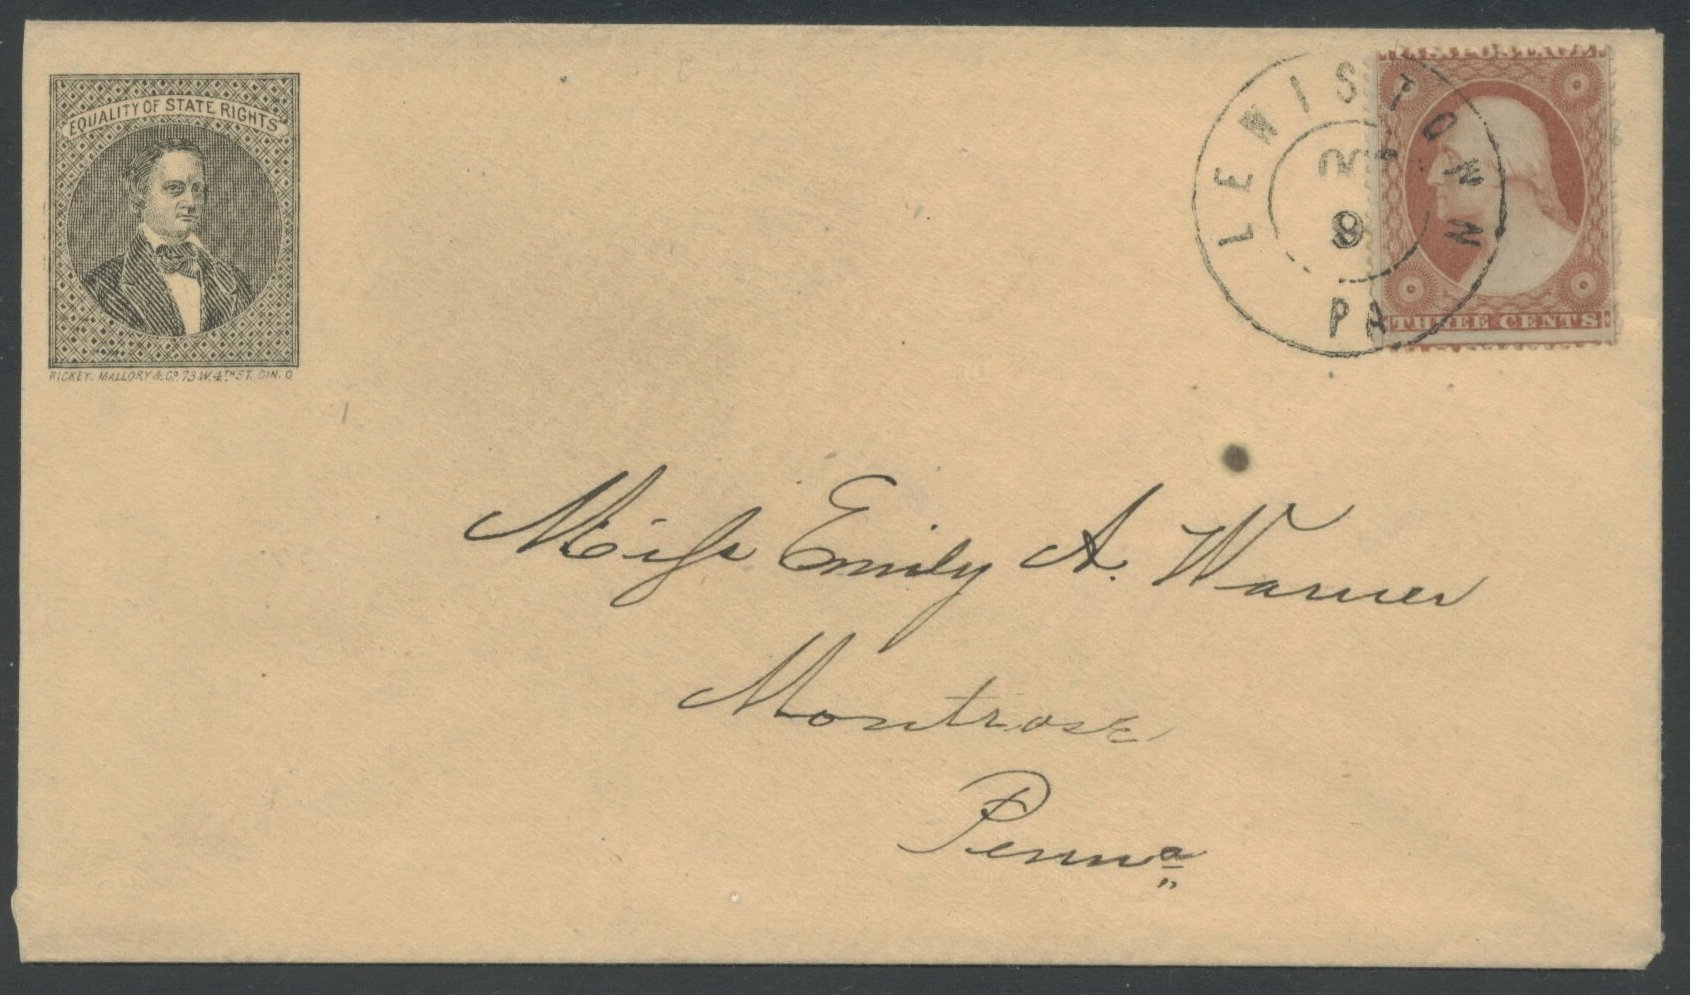 EQUALITY OF STATE RIGHTS
RICKEY. MALLORY & Co. 73 W. 4TH ST. CIN. O
LEWISTOWN
OCT
8
PA
THREE CENTS
Miss Emily A. Warner
Montrose
Penna